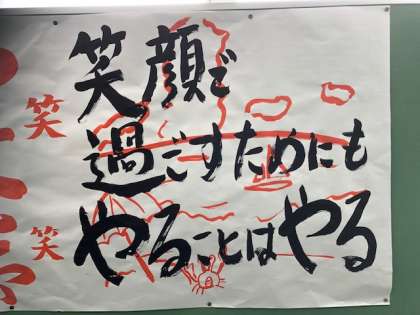 笑顔で
過ごすためにも
やることはやる
笑
笑